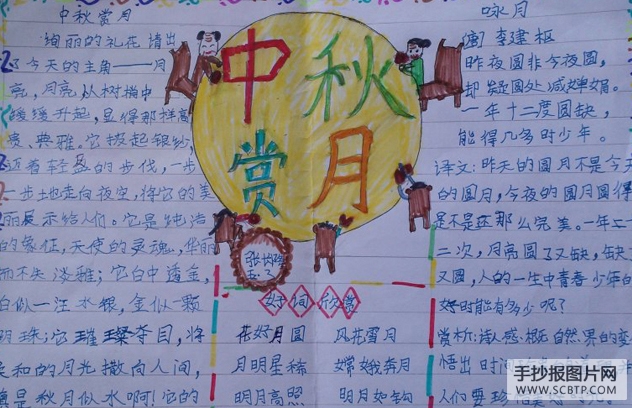 中秋赏月
绚丽的礼花请出
了今天的主角——月
亮，月亮从树梢中
缓缓升起，显得那样高
贵、典雅。它披起银纱，
迈着轻盈的步伐，一步
一步地走向夜空，将它的美
丽展示给人们。它是纯洁
的象征，天使的灵魂，华丽
而不失淡雅；它白中透金，
白似一汪水银，金似一颗
明珠；它璀璨夺目，将
柔和的月光撒向人间，
真是秋月似水啊！它的
中秋
赏月
五.3
好词欣赏
花好月圆 风花雪月
月明星稀 嫦娥奔月
明月高照 明月如钩
咏月
[唐] 李建枢
昨夜圆非今夜圆，
却疑圆处减婵娟。
一年十二度圆缺，
能得几多时少年。
译文：昨天的圆月不是今天
的圆月，今夜的圆月圆得
是不是还那么完美。一年二
二次，月亮圆了又缺，缺了
又圆，人的一生中青春少年的
好时能有多少呢？
赏析：诗人感 根据自然界的变
悟出时间
人们要珍
手抄报图片网
WWW.SCBTP.COM